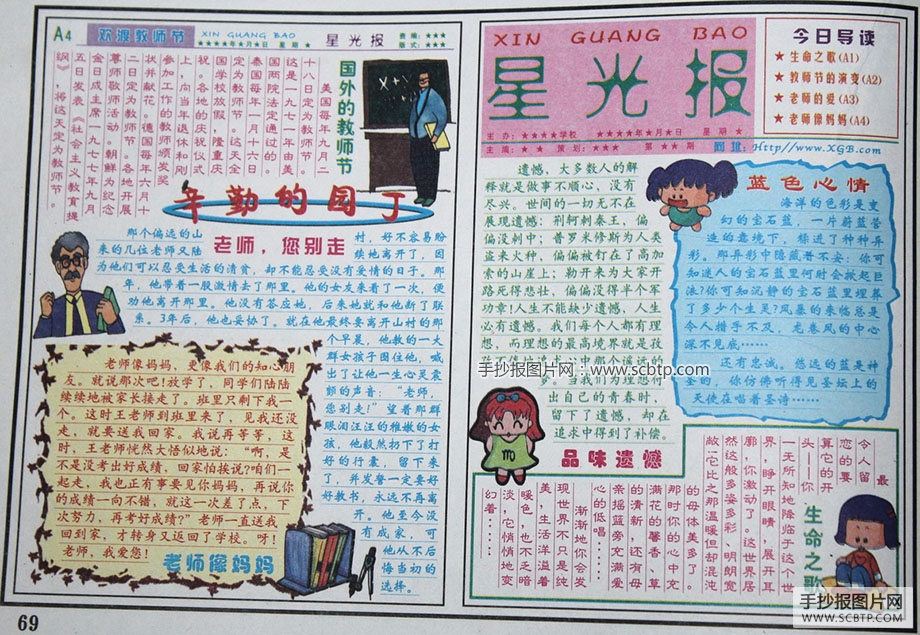 A4
欢渡教师节
XIN GUANG BAO
★★★★年★月★日 星期★
星光报
责编：★★★
版式：★★★
国外的教师节
美国每年九月二
十八日定为教师节。
这是一九七一年由美
国两院法定通过的。
泰国每年一月十六日
定为教师节。这天全
国学校放假，隆重庆
祝。各地的庆祝仪式
上，向当年退休和刚
参加工作的教师颁发奖
状并献花。德国每年六月十
二日定为教师节。各地开展
尊师敬师活动。朝鲜为纪念
金日成主席一九七七年九月
五日发表《社会主义教育提
纲》，将这天定为教师节。
辛勤的园丁
老师，您别走
那个偏远的山村，好不容易盼
来的几位老师又陆续地离开了，因
为他们可以忍受生活的清贫，却不能忍受没有爱情的日子。那
年，他带着一股激情去了那里。他的女友来看了一次，便
劝他离开那里。他没有答应她，后来她就和他断了联
系。3年后，他也妥协了。就在他最终要离开山村的那
个早晨，他教的一大
群女孩子围住他，喊
出了让他一生心灵震
颤的声音：“老师，
您别走!”望着那群
眼泪汪汪的稚嫩的女
孩，他毅然扔下了打
好的行囊，留下来
了，并发誓一定要好
好教书，永远不再离
开。他至今没
有成家，可
他从不后
悔当初的
选择。
老师像妈妈，更像我们的知心朋
友。就说那次吧!放学了，同学们陆陆
续续地被家长接走了。班里只剩下我一
个。这时王老师到班里来了，见我还没
走，就要送我回家。我说再等等，这
时，王老师恍然大悟似地说：“啊，是
不是没考出好成绩，回家怕挨说?咱们一
起走，我也正有事要见你妈妈，再说你
的成绩一向不错，就这一次差了点，下
次努力，再考好成绩?”老师一直送我
回到家，才转身又返回了学校。呀!
老师，我爱您!
老师像妈妈
69
XIN GUANG BAO
星光报
主办：★★★★学校 ★★★★年★月★日 星期★
主编：★★ 策划：★★★ 第★★期
网址：Http//www.XGB.com
今日导读
★生命之歌(A1)
★教师节的演变(A2)
★老师的爱(A3)
★老师像妈妈(A4)
遗憾，大多数人的解
释就是做事不顺心，没有
尽兴。世间的一切无不在
展现遗憾：荆轲刺秦王，偏
偏没刺中；普罗米修斯为人类
盗来火种，偏偏被钉在了高加
索的山崖上；勒开来为大家开
路死得悲壮，偏偏没得半个军
功章!人生不能缺少遗憾，人生
必有遗憾。我们每个人都有理
想，而理想的最高境界就是孜
多。当我们为理想付
出自己的青春时，
留下了遗憾，却在
追求中得到了补偿。
品味遗憾
手抄报图片网：www.scbtp.com
蓝色心情
海洋的色彩是变
幻的宝石蓝，一片蔚蓝营
造的意境下，糅进了种种异
彩。那异彩中隐藏着不安：你可
知迷人的宝石蓝里何时会掀起巨
浪?你可知沉静的宝石蓝里埋葬
了多少个生灵?风暴的来临总是
令人措手不及，龙卷风的中心
深不见底……
还有忠诚。悠远的蓝是神
圣的，你仿佛听得见圣坛上的
天使在唱着圣诗……
生命之歌
最
令人留
恋的要
算它的开
头——你
一无所知地降临于这个世
界，睁开眼睛，展开耳
廓，你激动了。这世界居
然这般多姿多彩，明朗宽
敞!它比之那温暖但却混沌
的母体美多了。
那时你的心中充
满花的馨香、草
的清新，还有母
亲摇篮旁充满爱
心的低唱……
渐渐地你会发
现世界不只是纯
美，生活洋溢着
暖色，也不乏暗
淡，它悄悄地变
幻着……
手抄报图片网
WWW.SCBTP.COM